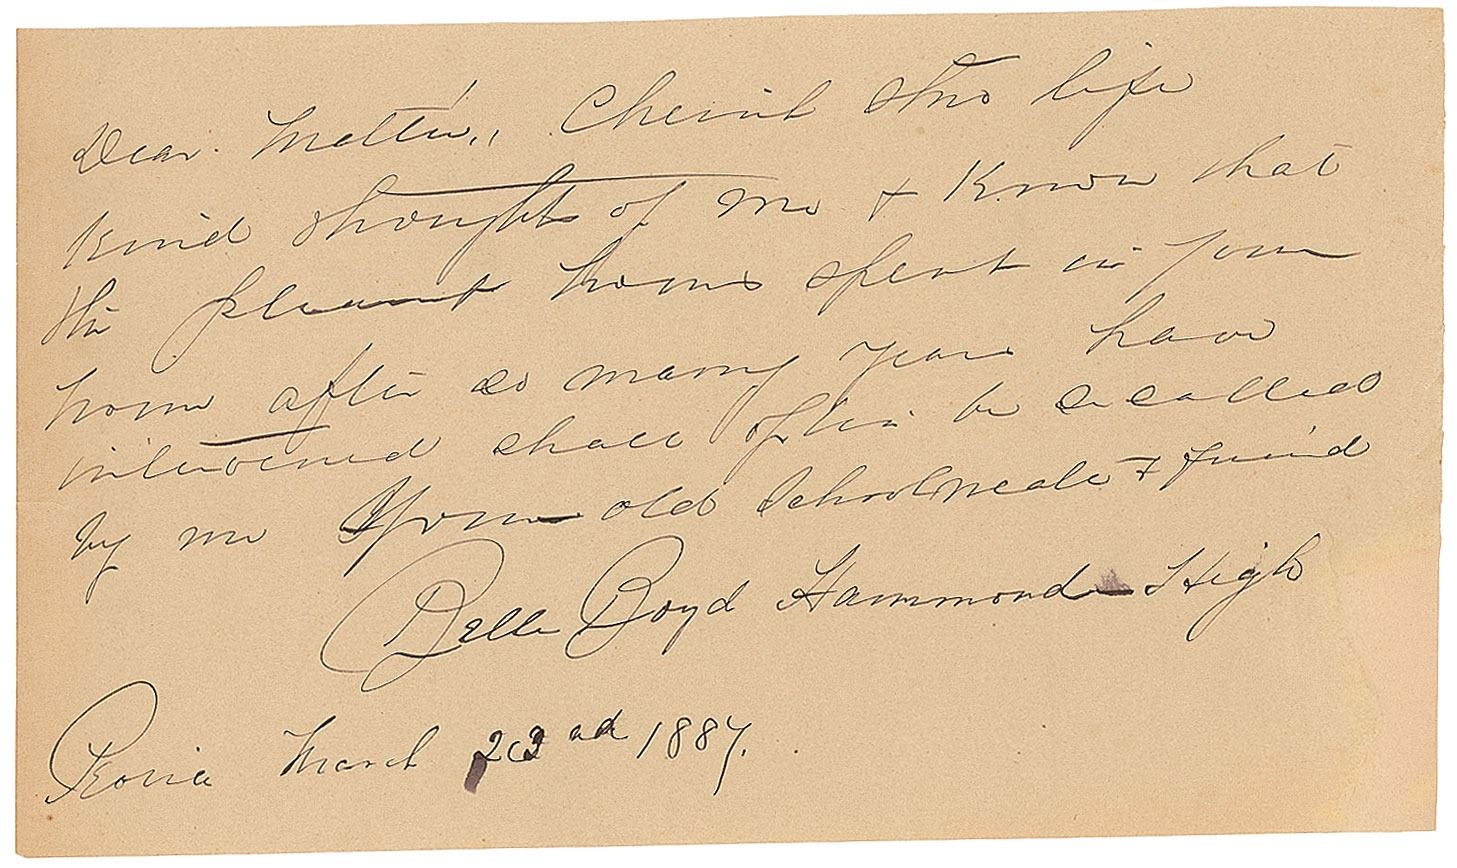 Dear Mattie, Cherish thro life
kind thoughts of me & Know that
the pleasant hours spent in your
home after so many years have
intervened shall often be recalled
by me Your old Schoolmate & friend
Belle Boyd Hammond High
March 23rd 1887.